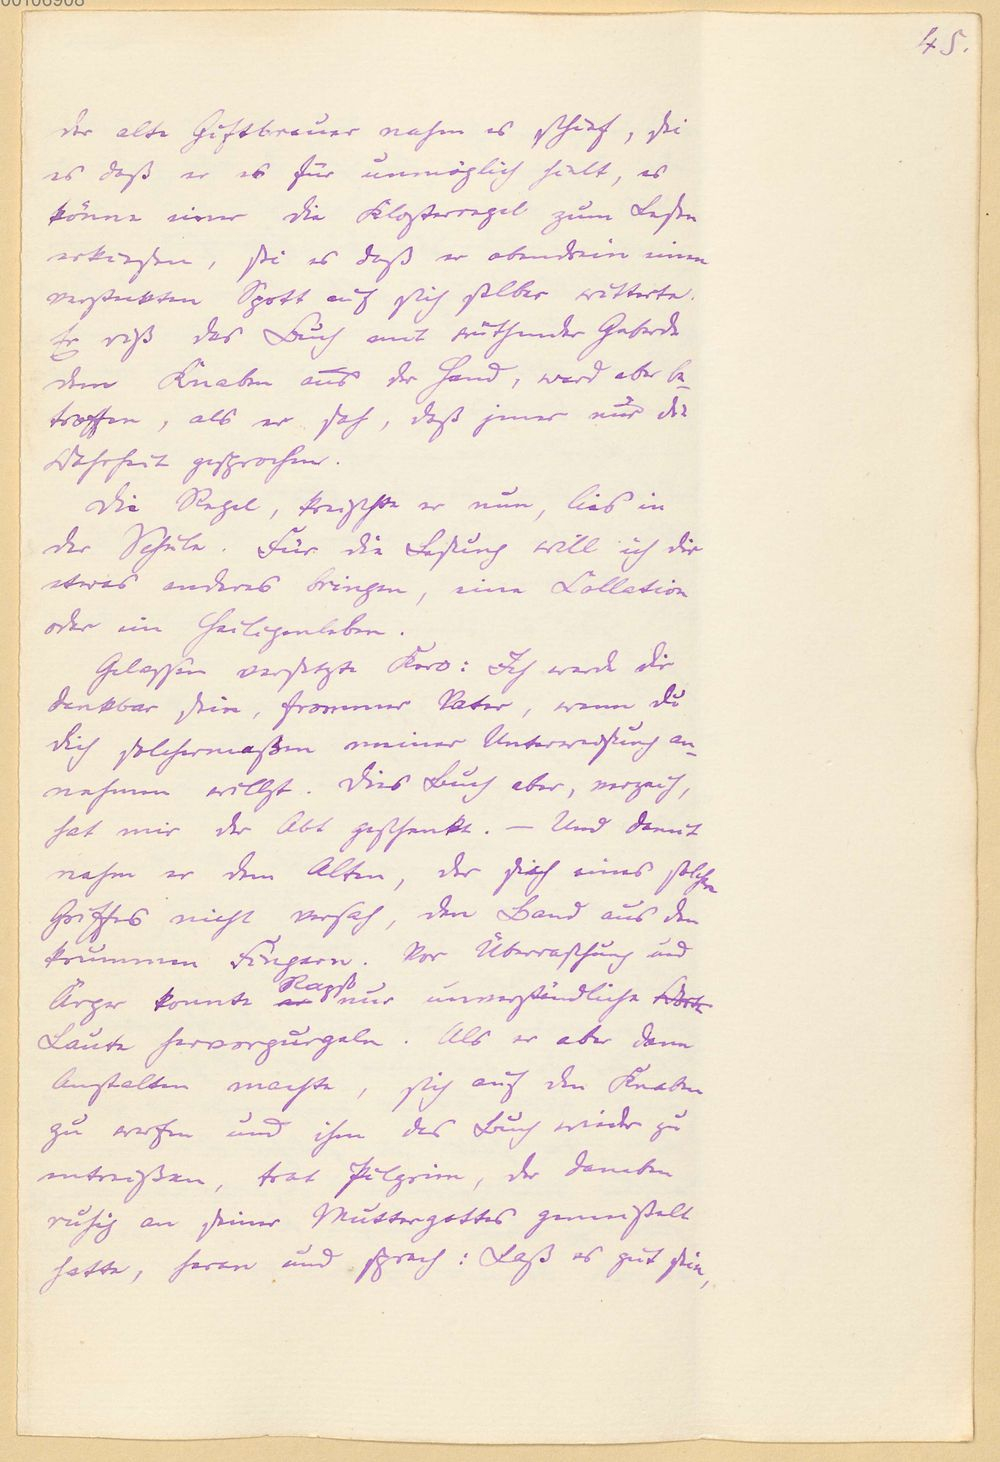 00106908
45.
der alte Giftbrauer nahm es schief, sei
es daß er es für unmöglich hielt, es
könne einer die Klosterregel zum Lesen
erkiesen, sei es daß er obendrein einen
versteckten Spott auf sich selber witterte.
Er riß das Buch mit wüthender Geberde
dem Knaben aus der Hand, ward aber be-
troffen, als er sah, daß jener nur die
Wahrheit gesprochen.
Die Regel, kreischte er nun, lies in
der Schule. Für die Lesung will ich dir
etwas anderes bringen, eine Collation
oder ein Heiligenleben.
Gelassen versetzte Karo: Ich werde dir
dankbar sein, frommer Vater, wenn du
dich solchermaßen meiner Unterweisung an-
nehmen willst. Dies Buch aber, verzeih,
hat mir der Abt geschenkt. — Und damit
nahm er dem Alten, der sich eines solchen
Griffes nicht versah, den Band aus den
krummen Fingern. Vor Überraschung und
Ärger konnte er Rapso nur unverständliche Worte
Laute hervorgurgeln. Als er aber dann
Anstalten machte, sich auf den Knaben
zu werfen und ihm das Buch wieder zu
entreißen, trat Pilgrim, der daneben
ruhig an seiner Muttergottes gemeißelt
hatte, heran und sprach: Laß es gut sein,